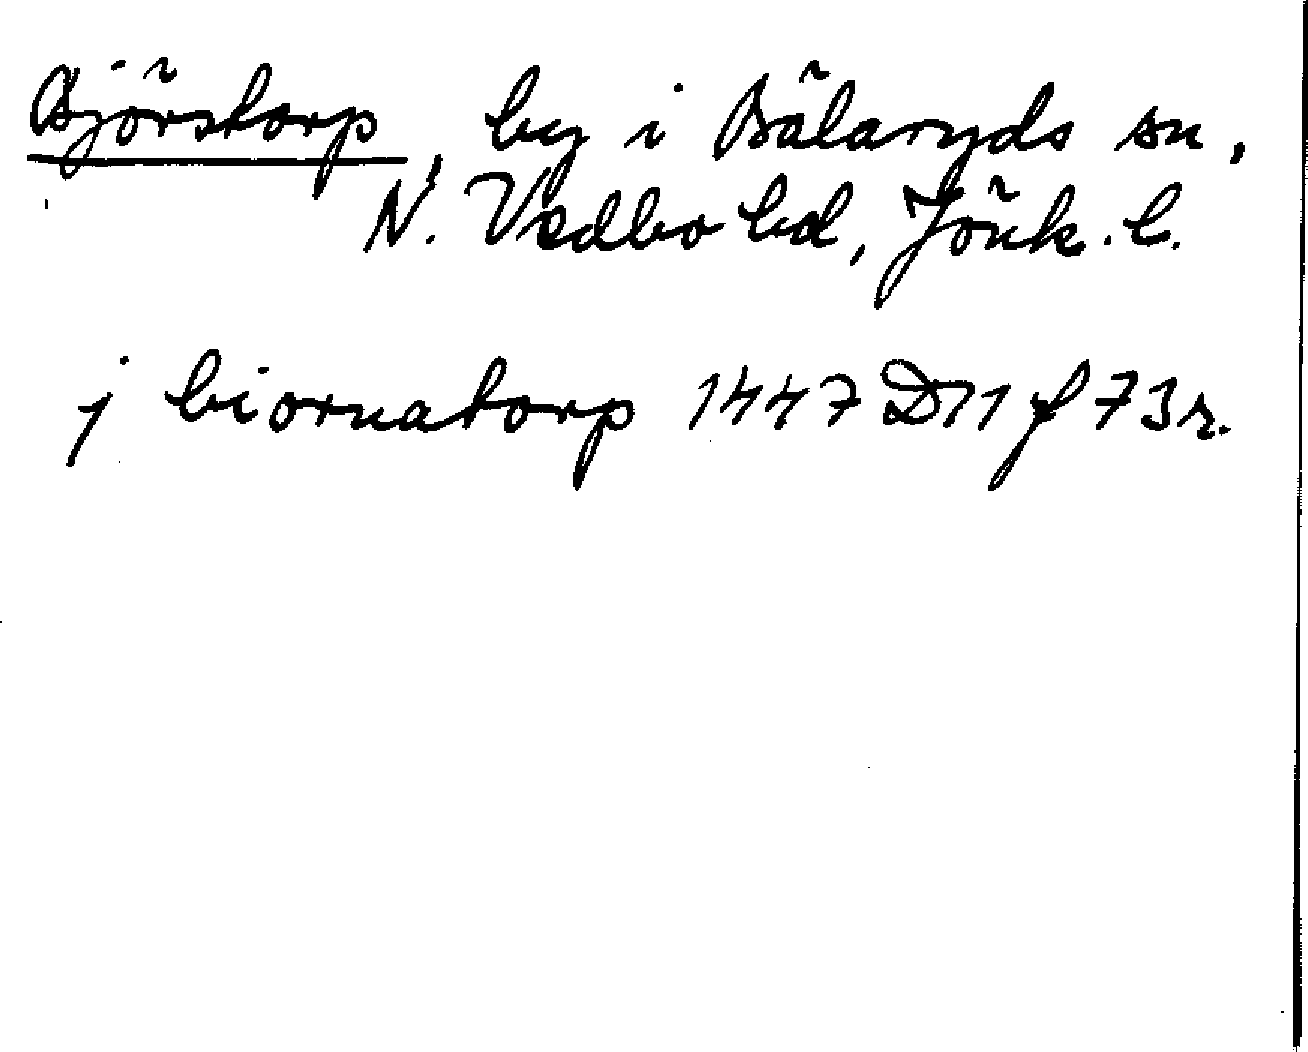 Björstorp, by i Bälaryds sn,
N. Vedbo hd, Jönk. l.
j biornatorp 1447 D11 f 73 r.